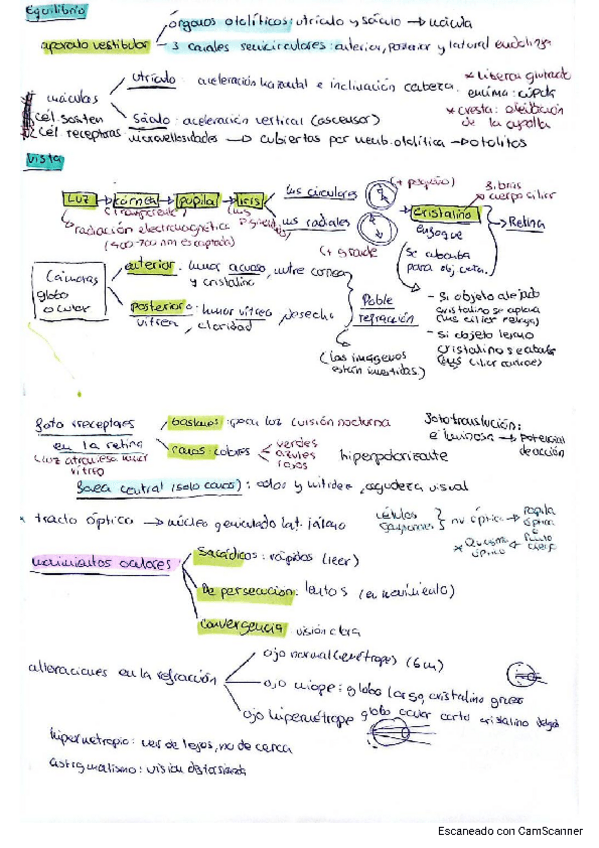 Equilibrio
órganos otolíticos: utrículo y sáculo → mácula
aparato vestibular
3 canales semicirculares: anterior, posterior y lateral
utrículo: aceleración horizontal e inclinación cabeza.
* libera glutamato
encima: cúpula
máculas
sáculo: aceleración vertical (ascensor)
* cresta:
de la cúpula
cél. sosten
cél. receptoras microvellosidades → cubiertas por memb. otolítica → otolitos
Vista
LUZ → córnea → pupila → iris
(transparente)
mus circulares (+ pequeño)
mus radiales (+ grande
radiación electromagnética
(400-700 nm es captada)
cristalino
fibras
cuerpo ciliar
→ Retina
enfoque
(se abomba
para obj. cerca.)
Cámaras
globo
ocular
anterior: humor acuoso, entre cornea
y cristalino
posterior: humor vítreo, desecho
vitrea, claridad
Doble
refracción
(las imágenes
están invertidas)
- Si objeto alejado
cristalino se aplana
(mus ciliar relaja)
- si objeto
cristalino se
(mus ciliar contrae)
en la retina
(luz atraviesa humor
vítreo)
bastones: poca luz (visión nocturna
conos: colores
verdes
azules
rojos
hiperpolarizante
fototransducción:
e luminosa → potencial
de acción
fóvea central (solo conos): color y nitidez, agudeza visual
* tracto óptico → núcleo geniculado lat. tálamo
células
ganglionares
nv óptico → papila
óptica
punto
ciego
* Quiasma
óptico
movimientos oculares
Sacádicos: rápidos (leer)
De persecución: lentos (en movimiento)
convergencia: visión clara
alteraciones en la refracción
ojo normal (emétrope) (6m)
ojo miope: globo largo, cristalino grueso
ojo hipermétrope globo ocular corto cristalino delgado
hipermetropia: ver de lejos, no de cerca
astigmatismo: visión distorsionada
Escaneado con CamScanner